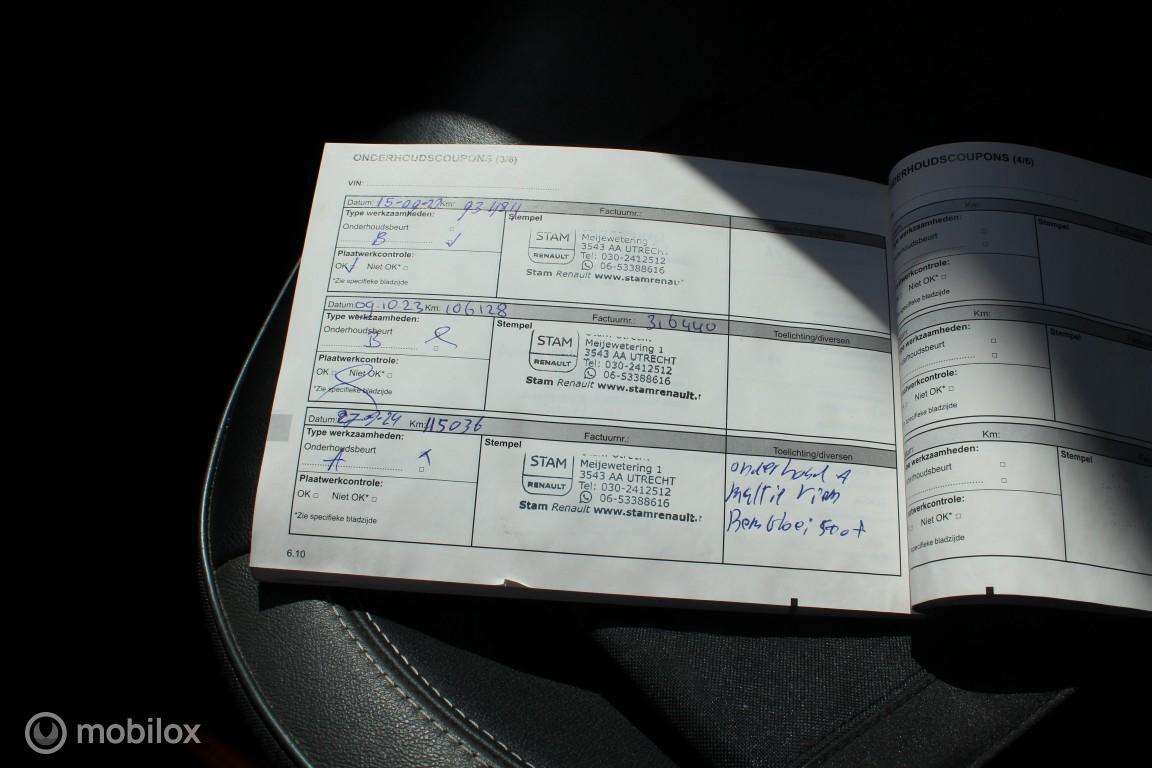 ONDERHOUDSCOUPONS (3/6)
VIN:
Datum: 15-09-22 Km:
Factuurnr.:
Toelichting/diversen
Type werkzaamheden:
Stempel
Onderhoudsbeurt
B
Plaatwerkcontrole:
OK Niet OK*
*Zie specifieke bladzijde
STAM
RENAULT
Meijewetering
3543 AA UTRECH
Tel: 030-2412512
06-53388616
Stam Renault www.stamrenau
Datum: 09.10.23 Km: 106128
Factuurnr.: 316440
Toelichting/diversen
Type werkzaamheden:
Stempel
Onderhoudsbeurt
B
Plaatwerkcontrole:
OK Niet OK*
*Zie specifieke bladzijde
STAM
RENAULT
Meijewetering 1
3543 AA UTRECHT
Tel: 030-2412512
06-53388616
Stam Renault www.stamrenault.
Datum: 27-9-24 Km: 115036
Factuurnr.:
Toelichting/diversen
Type werkzaamheden:
Stempel
Onderhoudsbeurt
A
Plaatwerkcontrole:
OK Niet OK*
*Zie specifieke bladzijde
STAM
RENAULT
Meijewetering 1
3543 AA UTRECHT
Tel: 030-2412512
06-53388616
Stam Renault www.stamrenault.
onderhoud A
6.10
NDERHOUDSCOUPONS (4/6)
Km:
e werkzaamheden:
Stempel
erhoudsbeurt
atwerkcontrole:
Niet OK*
specifieke bladzijde
Km:
e werkzaamheden:
Stempel
erhoudsbeurt
aatwerkcontrole:
Niet OK*
e specifieke bladzijde
Km:
e werkzaamheden:
Stempel
derhoudsbeurt
aatwerkcontrole:
Niet OK*
specifieke bladzijde
mobilox